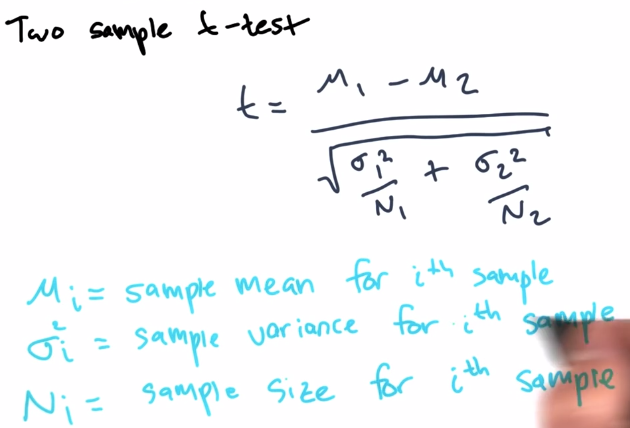 Two sample t-test
t = μ₁ - μ₂
√ σ₁² / N₁ + σ₂² / N₂
μi = sample mean for ith sample
σi² = sample variance for ith sample
Ni = sample size for ith sample